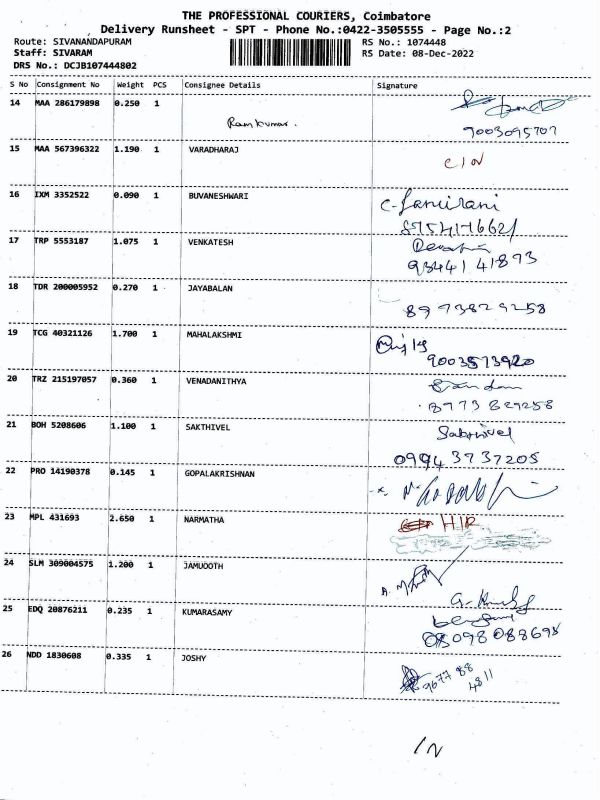 THE PROFESSIONAL COURIERS, Coimbatore
Delivery Runsheet - SPT - Phone No.:0422-3505555 - Page No.:2
Route: SIVANANDAPURAM RS No.: 1074448
Staff: SIVARAM RS Date: 08-Dec-2022
DRS No.: DCJB107444802
S No Consignment No Weight PCS Consignee Details Signature
14 MAA 286179898 0.250 1
Ramkumar. 9003095707
15 MAA 567396322 1.190 1 VARADHARAJ
16 IXM 3352522 0.090 1 BUVANESHWARI
17 TRP 5553187 1.075 1 VENKATESH
93441 41893
18 TDR 200005952 0.270 1 JAYABALAN
8973829258
19 TCG 40321126 1.700 1 MAHALAKSHMI
9003573920
20 TRZ 215197057 0.360 1 VENADANITHYA
8973829258
21 BOH 5208606 1.100 1 SAKTHIVEL
Sakthivel
09943737205
22 PRO 14190378 0.145 1 GOPALAKRISHNAN
23 MPL 431693 2.650 1 NARMATHA
24 SLM 309004575 1.200 1 JAMUDOTH
25 EDQ 20876211 0.235 1 KUMARASAMY
26 NDD 1830608 0.335 1 JOSHY
9677 88
4811